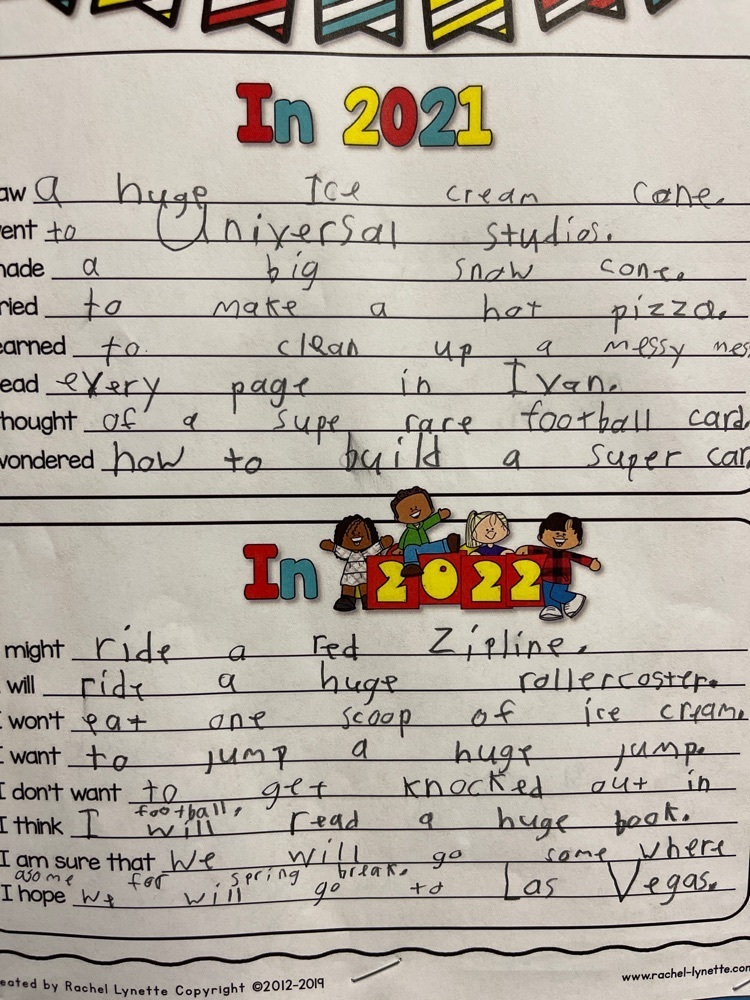 In 2021
aw a huge Ice cream cone.
ent to Universal studios.
ade a big snow cone.
ried to make a hot pizza.
earned to clean up a messy mes
ead every page in Ivan.
hought of a supe rare football card
wondered how to build a super car
In 2022
might ride a red Zipline.
will ride a huge rollercoster.
I won't eat one scoop of ice cream.
I want to jump a huge jump.
I don't want to get knocked out in
football.
I think I will read a huge book.
I am sure that we will go some where
asome for spring break.
I hope we will go to Las Vegas.
eated by Rachel Lynette Copyright ©2012-2019
www.rachel-lynette.com